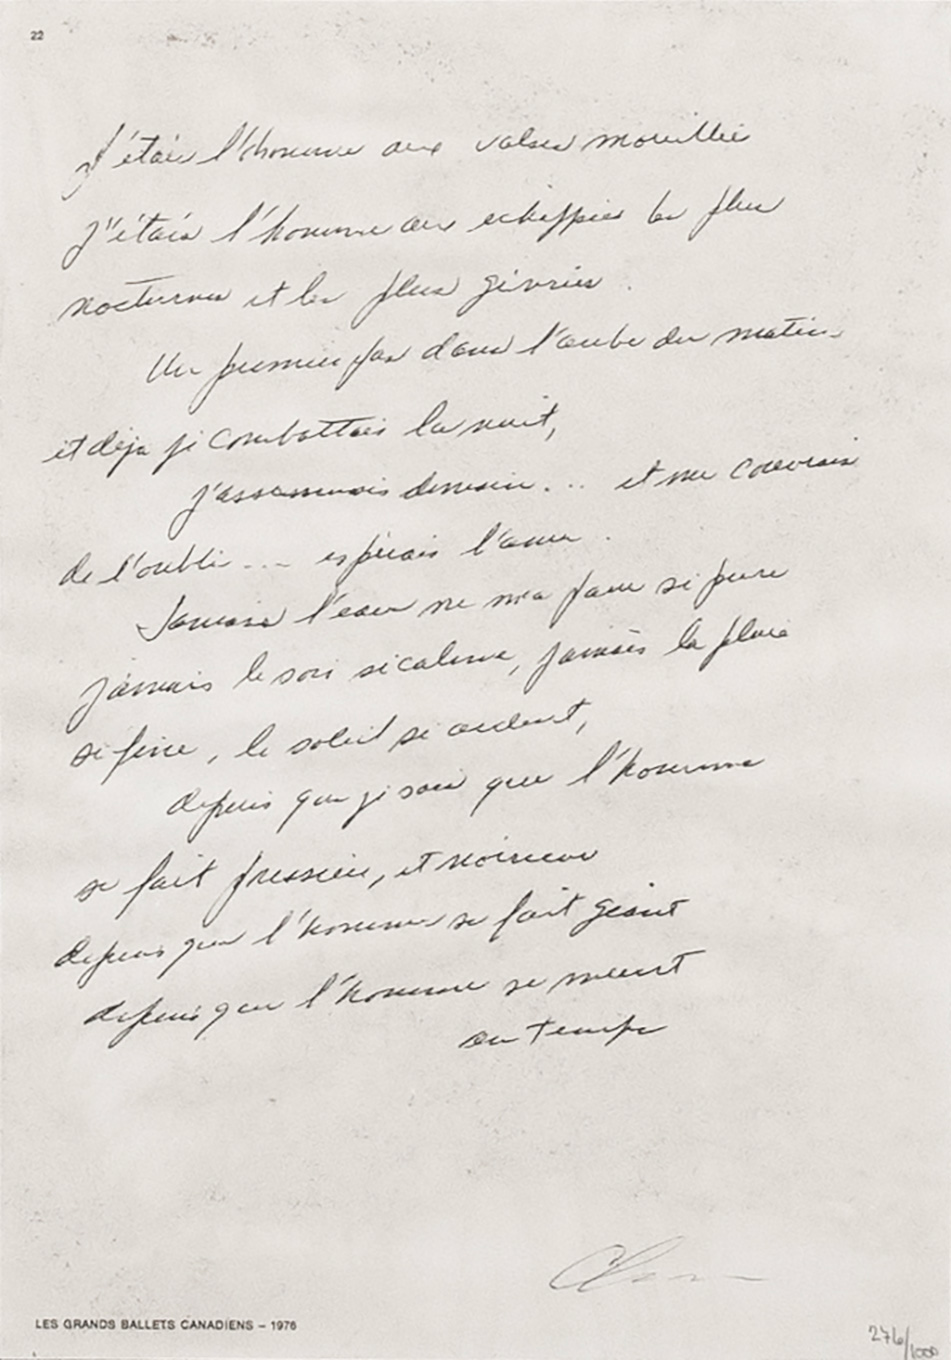 22
J'étais l'homme aux valses mouillées
J'étais l'homme aux échappées les plus
nocturnes et les plus givrées.
Un premier pas dans l'aube du matin
et déja je combattais la nuit,
j'assommais demain... et me couvrais
de l'oubli... espérais l'amer.
Jamais l'eau ne m'a paru si pure
jamais le soir si calme, jamais la pluie
si fine, le soleil si ardent,
depuis que je sais que l'homme
se fait poussière, et
depuis que l'homme se fait géant
depuis que l'homme se meurt
au temps
LES GRANDS BALLETS CANADIENS – 1976
276/1000